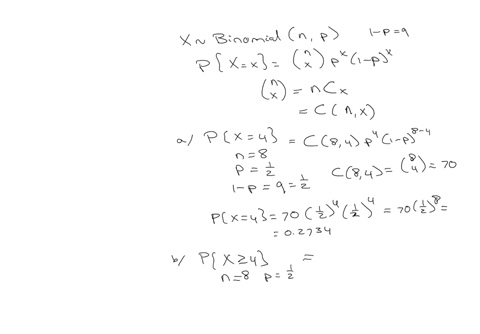 X ~ Binomial (n, p)   1-p=q
P{X=x} = (n x) p^x (1-p)^x
(n x) = nCx
= C(n,x)
a/ P{X=4} = C(8,4) p^4 (1-p)^8-4
n=8
p = 1/2   C(8,4) = (8 4) = 70
1-p = q = 1/2
P{X=4} = 70 (1/2)^4 (1/2)^4 = 70 (1/2)^8 =
= 0.2734
b/ P{X≥4} =
n=8 p=1/2